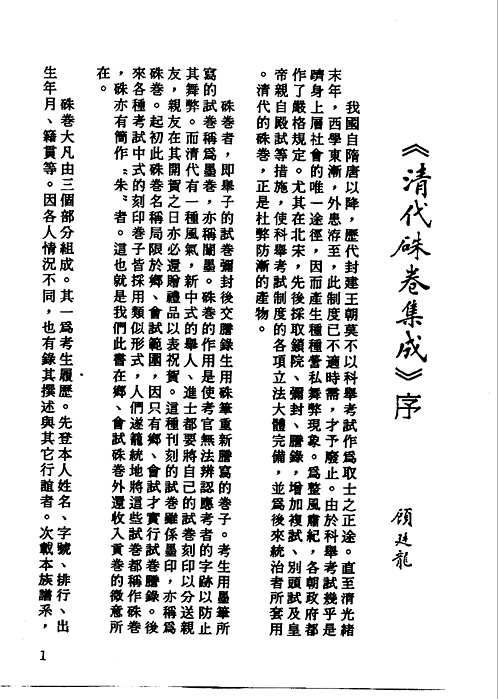 《清代硃卷集成》序
顧廷龍
我國自隋唐以降，歷代封建王朝莫不以科舉考試作爲取士之正途。直至清光緒
末年，西學東漸，外患洊至，此制度已不適時需，才予廢止。由於科舉考試幾乎是
躋身上層社會的唯一途徑，因而產生種種營私舞弊現象。爲整風肅紀，各朝政府都
作了嚴格規定。尤其在北宋，先後採取鎖院、彌封、謄錄，增加複試、別頭試及皇
帝親自殿試等措施，使科舉考試制度的各項立法大體完備，並爲後來統治者所套用
。清代的硃卷，正是杜弊防漸的產物。
硃卷者，即舉子的試卷彌封後交謄錄生用硃筆重新謄寫的卷子。考生用墨筆所
寫的試卷稱爲墨卷，亦稱闈墨。硃卷的作用是使考官無法辨認應考者的字跡以防止
其舞弊。而清代有一種風氣，新中式的舉人、進士都要將自己的試卷刻印以分送親
友，親友在其開賀之日亦必還贈禮品以表祝賀。這種刊刻的試卷雖係墨印，亦稱爲
硃卷。起初此硃卷名稱局限於鄉、會試範圍，因只有鄉、會試才實行試卷謄錄。後
來各種考試中式的刻印卷子皆採用類似形式，人們遂籠統地將這些試卷都稱作硃卷
，硃亦有簡作〝朱〞者。這也就是我們此書在鄉、會試硃卷外還收入貢卷的微意所
在。
硃卷大凡由三個部分組成。其一爲考生履歷。先登本人姓名、字號、排行、出
生年月、籍貫等。因各人情況不同，也有錄其撰述與其它行誼者。次載本族譜系，
1